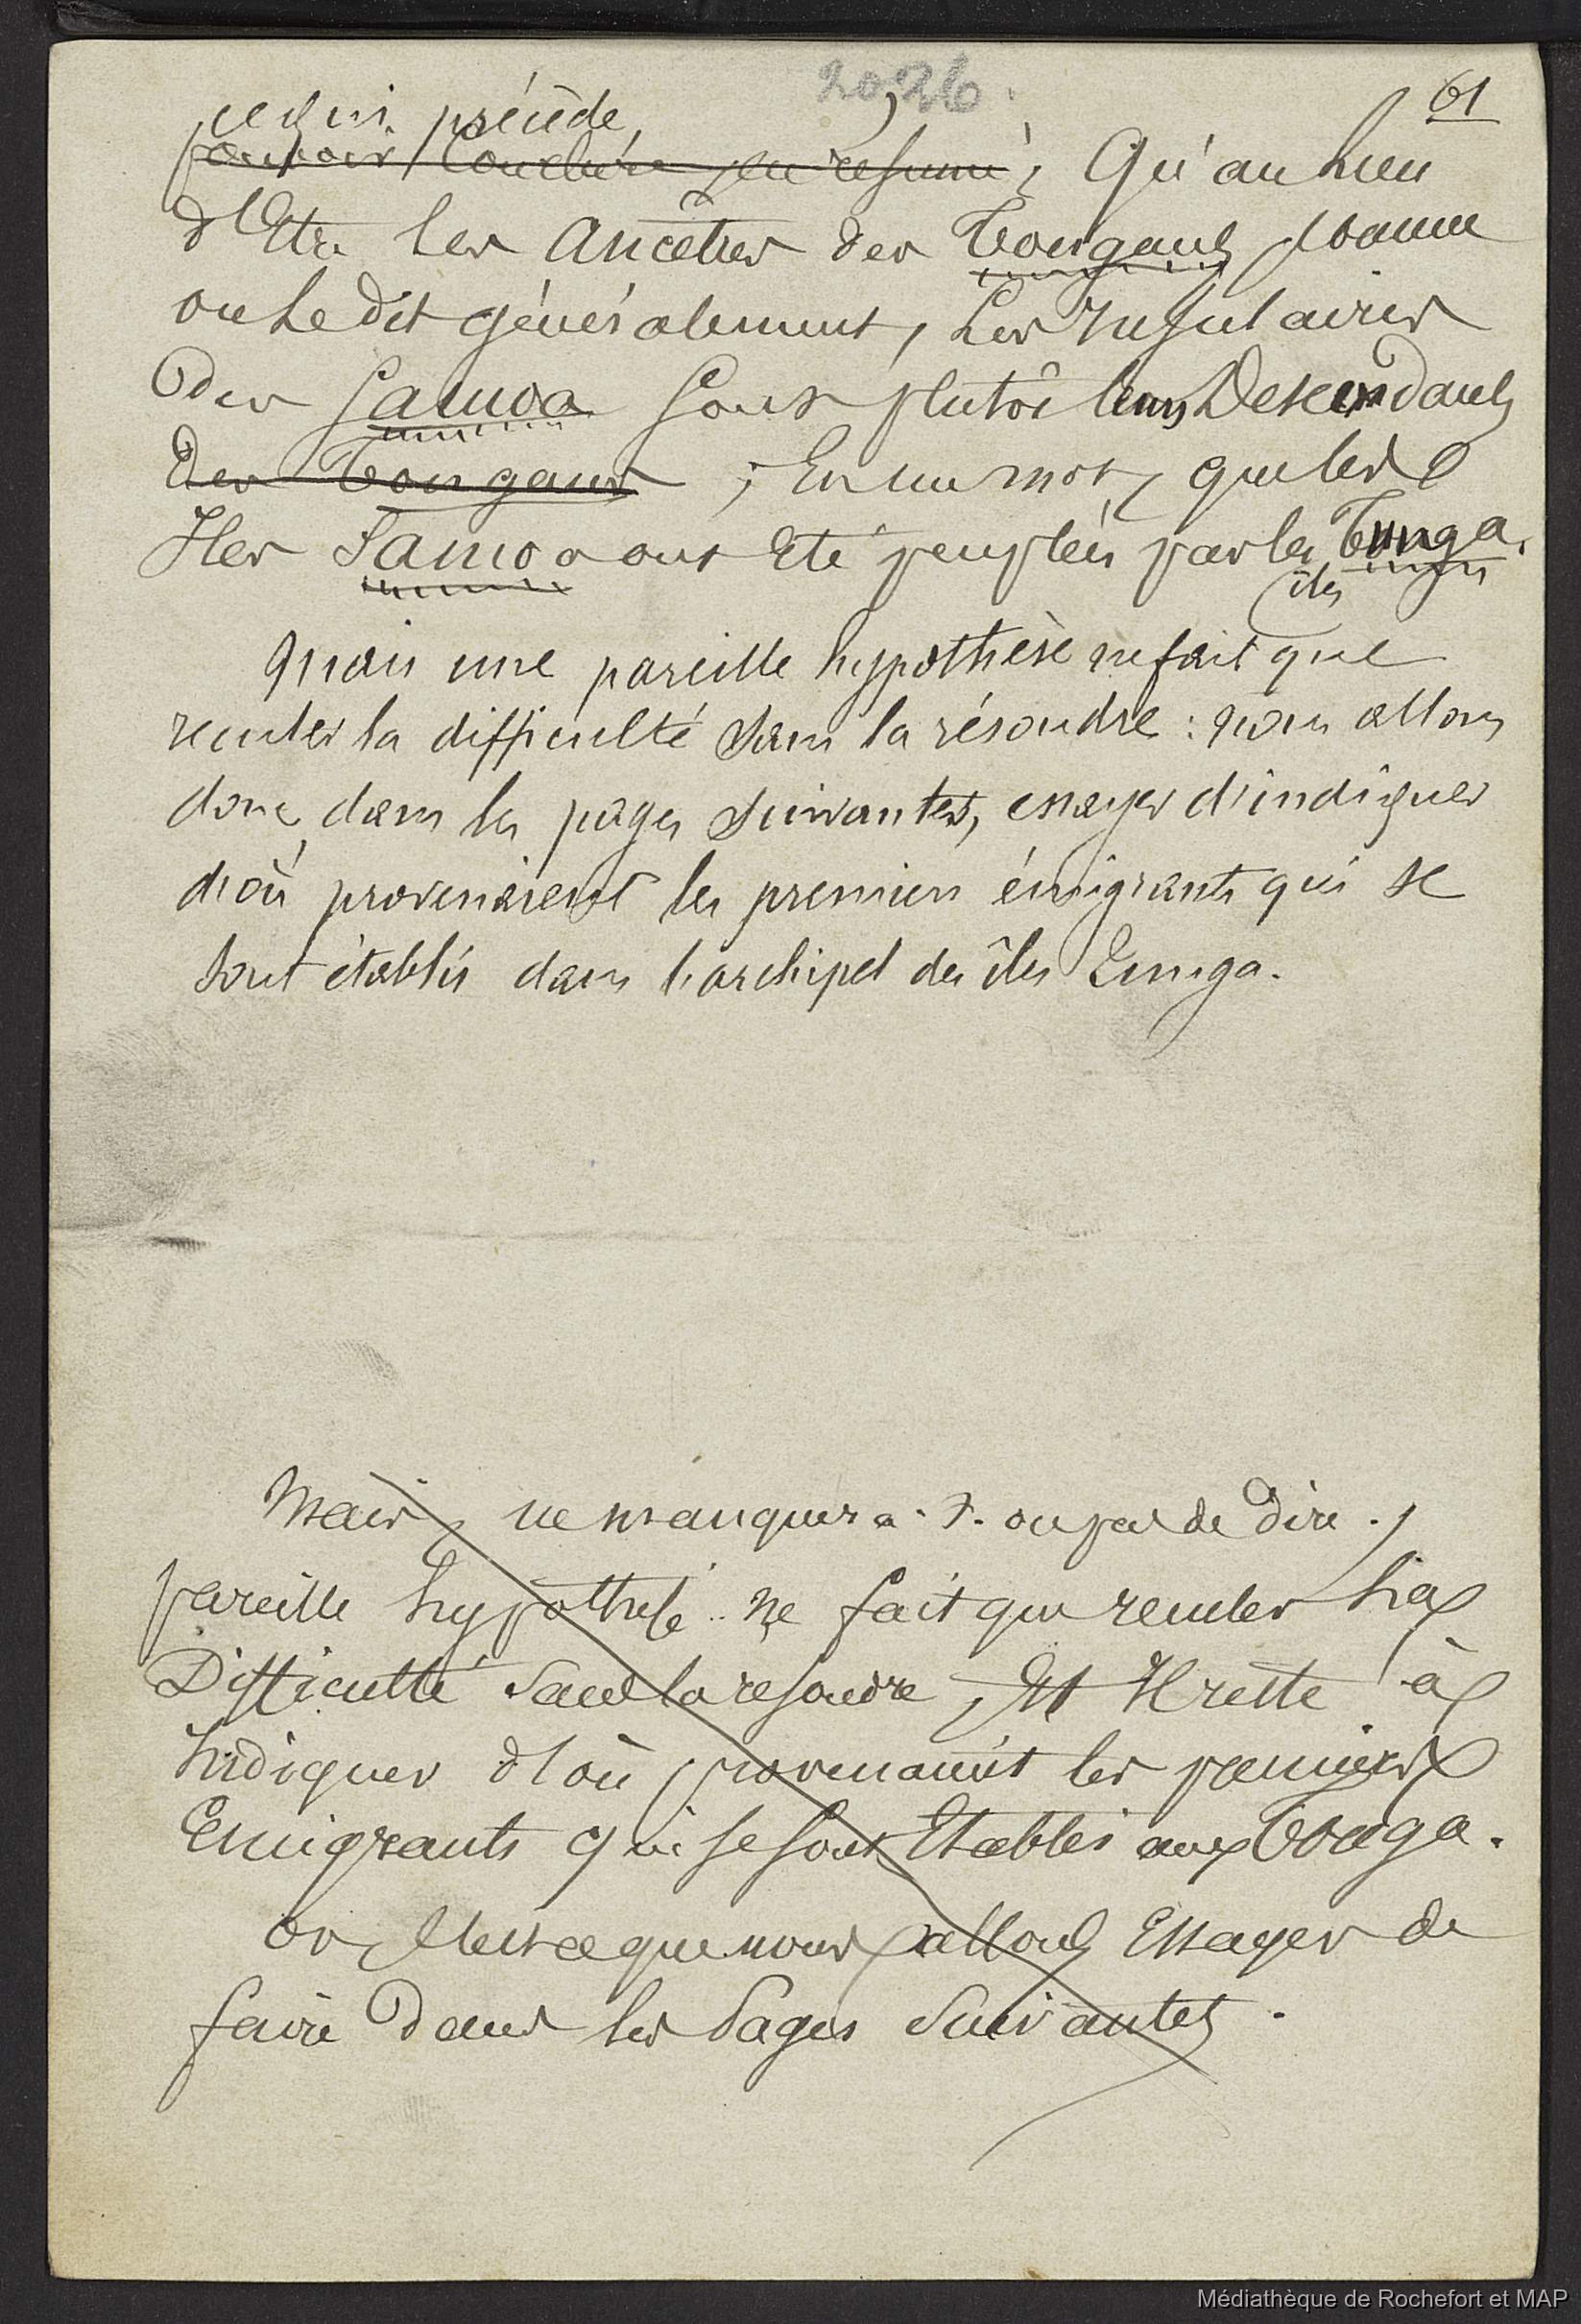 2026.
61
ce qui précède,
pouvoir conclure, en resumé, Qu'au lieu
d'Etre les Ancêtres des Tongans, comme
on le dit généralement, les Insulaires
des Samoa sont plutôt leurs Descendants
des Tongans ; En un mot, que les
Iles Samoa ont Eté peuplées par les Tunga.
îles
Mais une pareille hypothèse ne fait que
reculer la difficulté sans la résoudre : nous allons
donc, dans les pages suivantes, essayer d'indiquer
d'où provenaient les premiers émigrants qui se
sont établis dans l'archipel des îles Tunga.
Mais, ne manquera-t-on pas de dire,
pareille hypothese ne fait que reculer la
Difficulté sans la resoudre, Et Il reste à
Indiquer d'où provenaient les premiers
Emigrants qui se sont Etablis aux Tonga.
Or, c'est ce que nous allons Essayer de
faire dans les Pages Suivantes.
Médiathèque de Rochefort et MAP